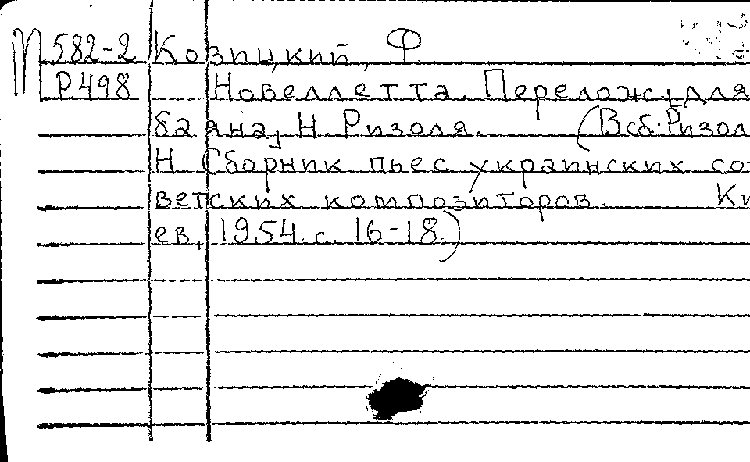 М 582-2 Козицкий, Ф.
Р498 Новеллетта. Переложҗ. для
баяна, Н. Ризоля. (В сб: Ризол
Н. Сборник пьес украинских со-
ветских композиторов. Ки
ев, 1954. с. 16-18.)